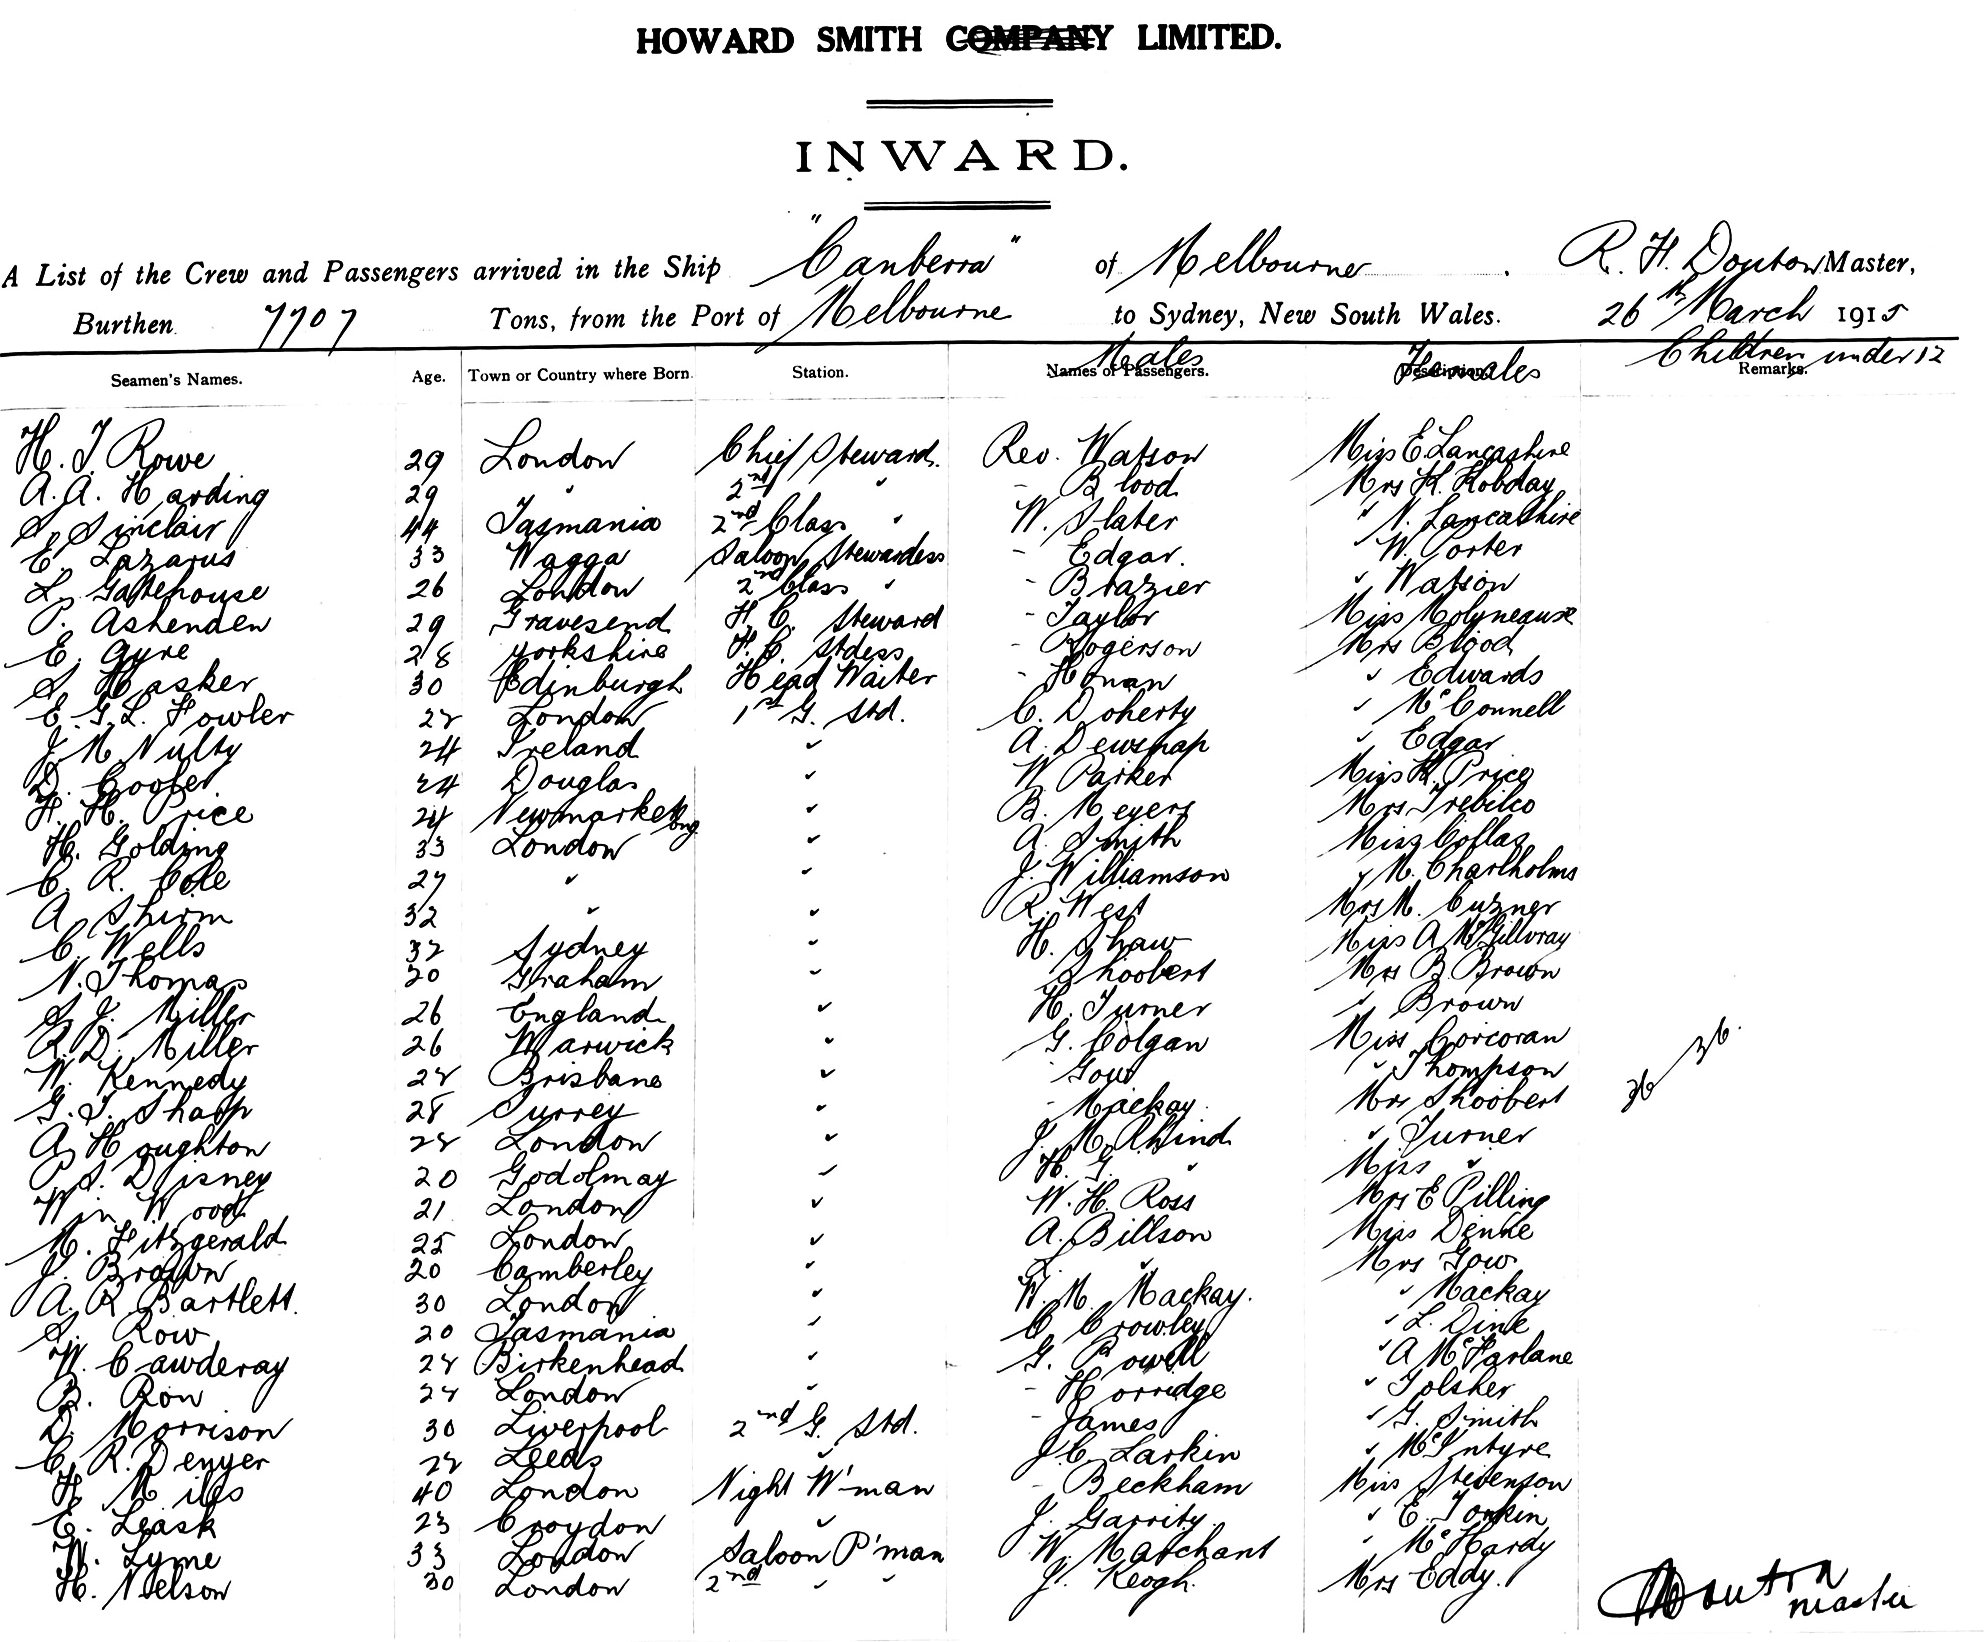 HOWARD SMITH COMPANY LIMITED.
INWARD.
A List of the Crew and Passengers arrived in the Ship "Canberra" of Melbourne. R. H. Douton Master,
Burthen 7707 Tons, from the Port of Melbourne to Sydney, New South Wales. 26th March 1915
Males Females Children under 12
Seamen's Names. Age. Town or Country where Born. Station. Names of Passengers. Description. Remarks.
H. J. Rowe 29 London Chief Steward. Rev. Watson Miss E Lancashire
A. A. Harding 29 " 2nd " - Blood Mrs H. Hobday
S. Sinclair 44 Tasmania 2nd Class " W. Slater " N. Lancashire
E. Lazarus 33 Wagga Saloon Stewardess - Edgar. " W. Porter
L. Gatehouse 26 London 2nd Class " - Brazier " Watson
P. Ashenden 29 Gravesend H. C. Steward - Taylor Miss Molyneaux
E. Gyre 28 Yorkshire F. C. Stdess - Rogerson Mrs Blood
S. Hasker 30 Edinburgh Head Waiter - Honan " Edwards
E. G. L. Fowler 28 London 1st G. Std. C. Doherty " McConnell
J. McNulty 24 Ireland " A. Dewsnap " Edgar
D. Cooper 24 Douglas " W. Parker Miss H. Price
H. H. Price 24 Newmarket Eng " B. Meyers Mrs Trebilco
H. Golding 33 London " A. Smith Miss Collas
C. R. Cole 27 " " J. Williamson " M. Charlholms
A. Shirm 32 " " R. West Mrs M. Cuzner
C. Wells 32 Sydney " H. Shaw Miss A McGillvray
N. Thomas 20 Graham " Shoobert Mrs B Brown
S. J. Miller 26 England " H. Turner " Brown
R. D. Miller 26 Warwick " G. Colgan Miss Corcoran
W. Kennedy 28 Brisbane " Gow " Thompson
G. T. Sharp 28 Surrey " - Mackay Mrs Shoobert
A. Houghton 28 London " J. M. Rhind " Turner
P. S. Disney 20 Godolmay " H. G. " Miss "
Wm Wood 21 London " W. H. Ross Mrs E Pilling
M. Fitzgerald 25 London " A. Billson Miss Denhe
J. Brown 20 Camberley " L. " Mrs Gow
A. R. Bartlett. 30 London " W. M. Mackay. " Mackay
S. Row 20 Tasmania " C Crowley " L. Dine
W. Cawderay 28 Birkenhead " G. Powell " A McFarlane
B. Ron 24 London " - Horridge " Golsher
D. Morrison 30 Liverpool 2nd G. Std. - James " G. Smith
C. R. Denyer 28 Leeds " J C. Larkin " McIntyre
H. Mills 40 London Night W'man - Beckham Miss Stevenson
E. Leask 23 Croydon " J. Garrity " E. Tonkin
W. Lyme 33 London Saloon P'man W. Matchant " McHardy
H. Nelson 30 London 2nd " " J. Keogh. Mrs Eddy.
36 36
Douton
master